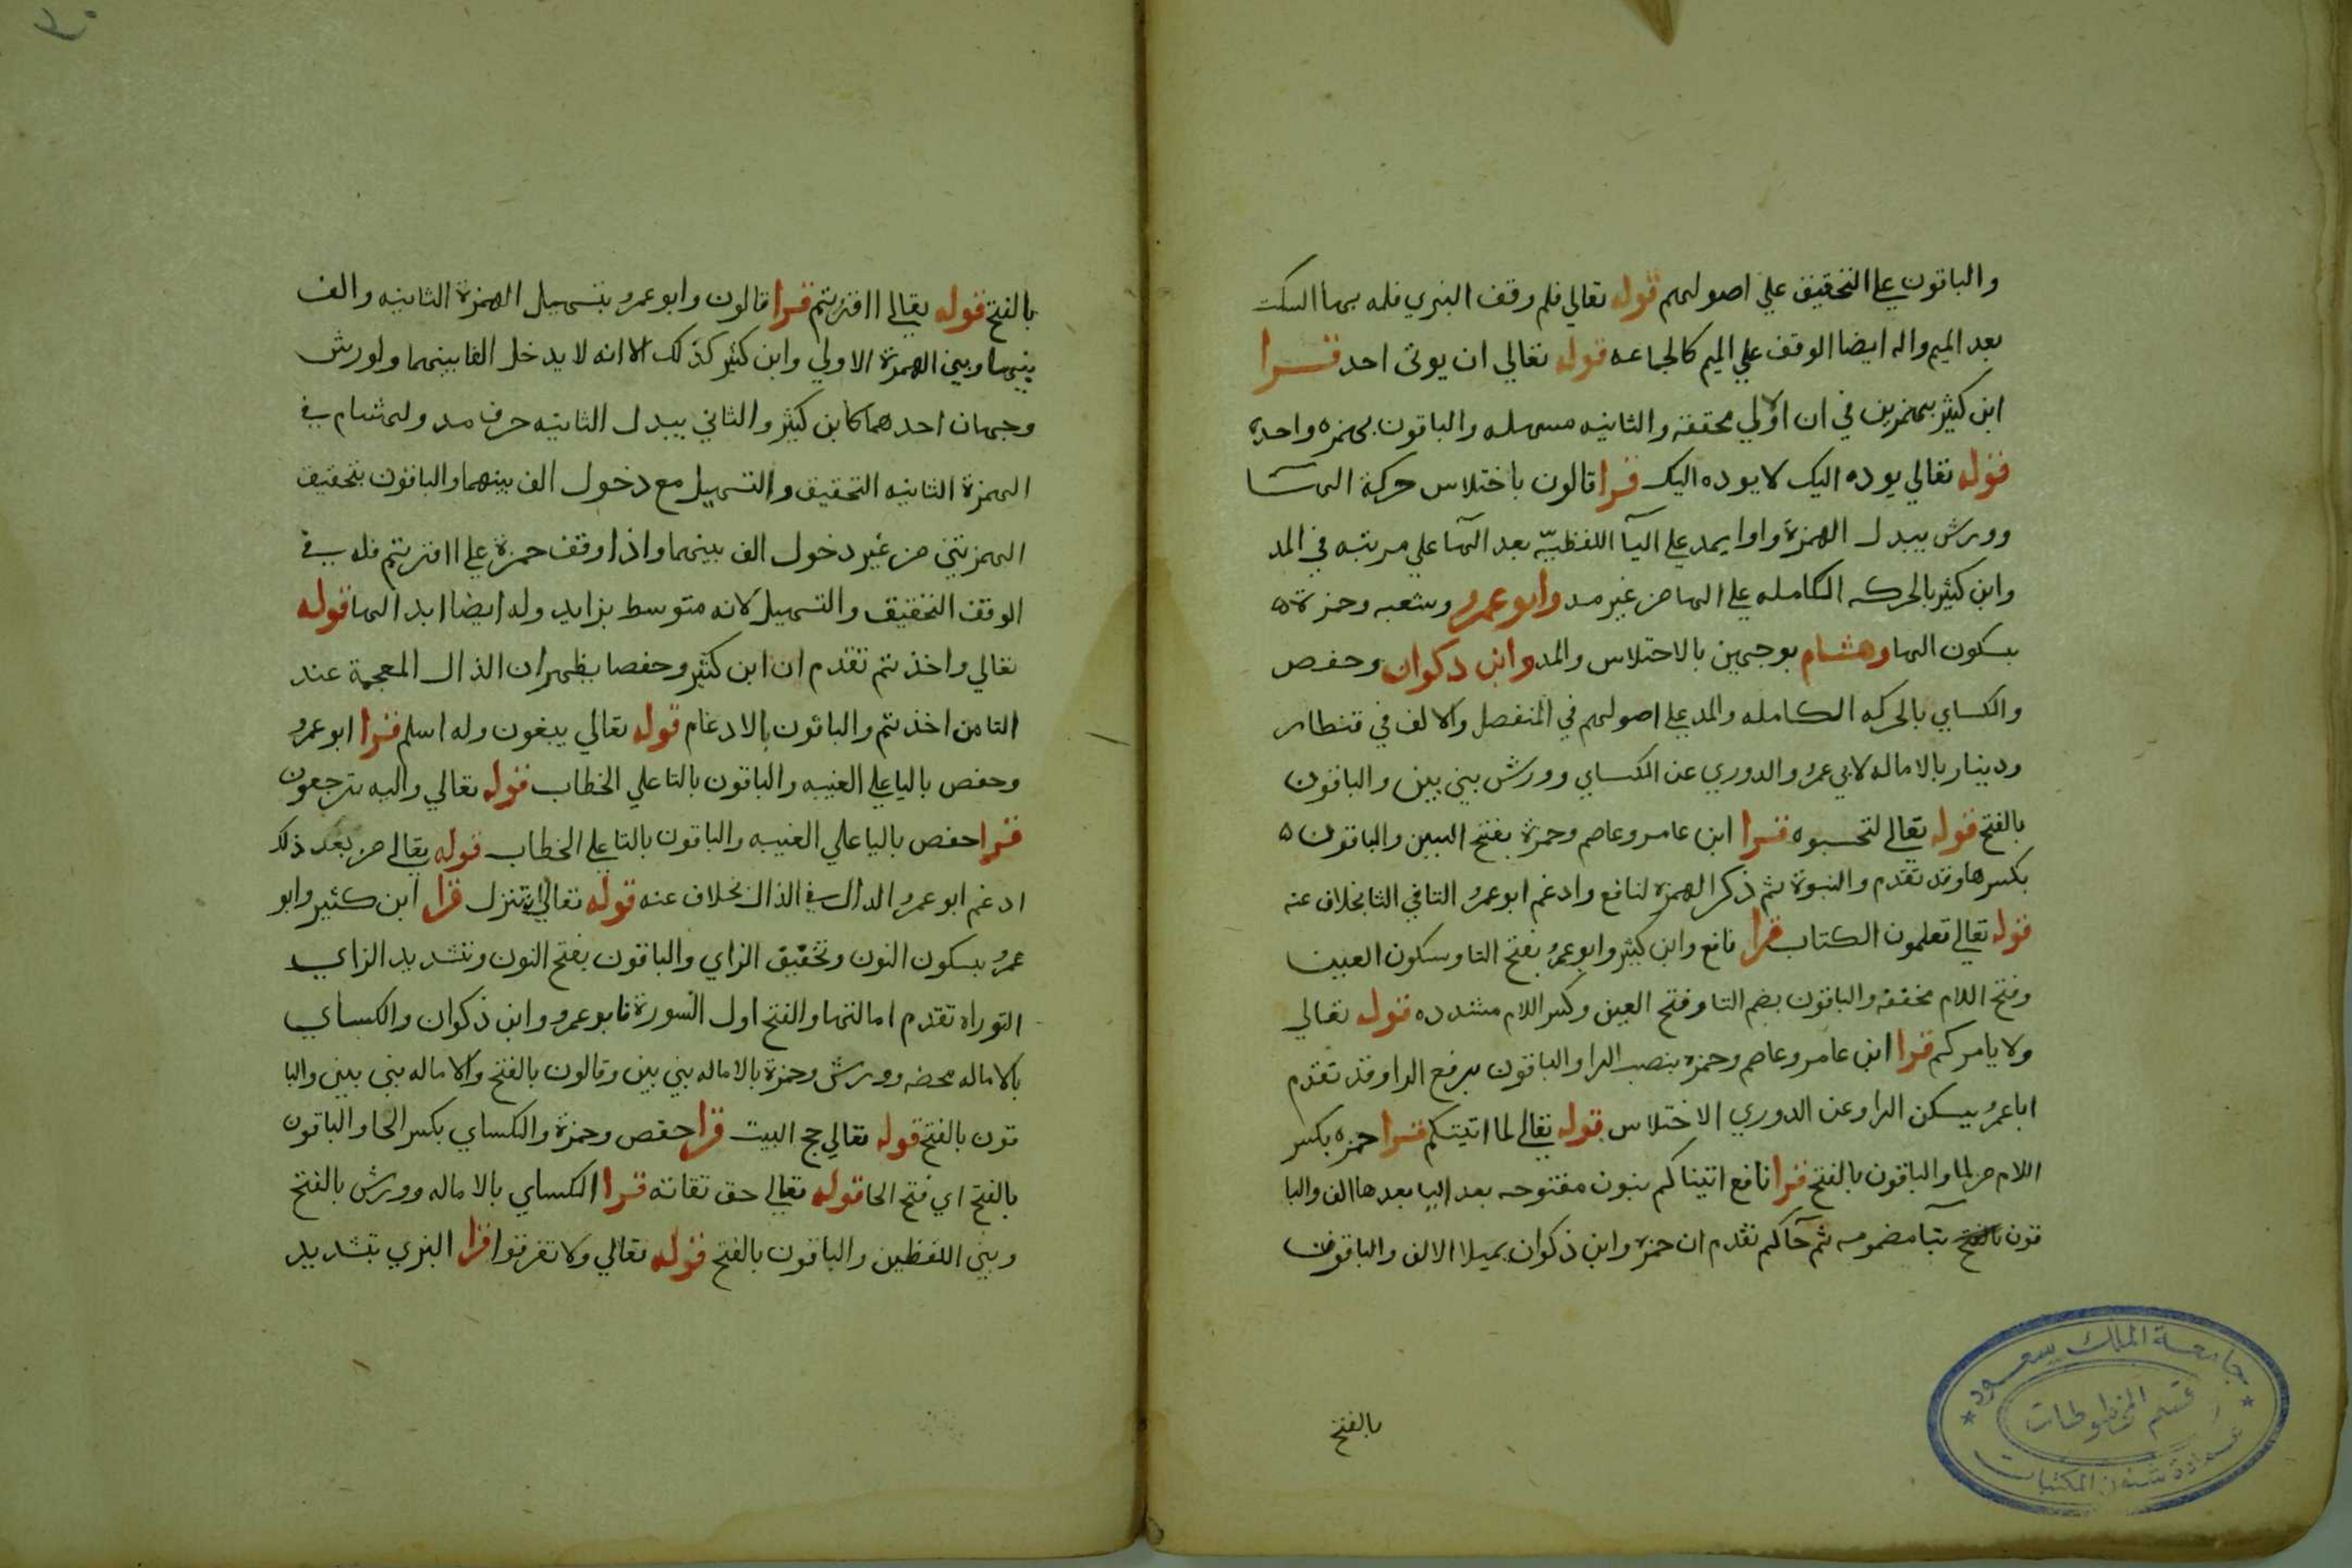 والباقون علي التحقيق علي اصولهم قوله تعالي فلم وقف البزي فله بهاالسكت
بعد الميم وله ايضا الوقف علي الميم كالجماعه قوله تعالي ان يوتي احد قرا
ابن كثير بهمزتين في ان الاولي محققة والثانيه مسهله والباقون بهمزه واحده
قوله تعالي يوده اليك لا يوده اليك قرا قالون باختلاس حركة الهآ
وورش يبدل الهمزة واوا يمد علي اليآ اللفظيّه بعد الهآ علي مرتبته في المد
وابن كثير بالحركه الكامله علي الها من غير مد وابوعمرو وشعبه وحمزة ه
بسكون الها وهشام بوجهين بالاختلاس والمد وابن ذكوان وحفص
والكساي بالحركه الكامله والمد علي اصولهم في المنفصل والالف في قنطار
ودينار بالاماله لابي عمرو والدوري عن الكساي وورش بين بين والباقون
بالفتح قوله تعالي لتحسبوه قرا ابن عامر وعاصم وحمزة بفتح السين والباقون ه
بكسرها وقد تقدم والنبوة ثم ذكر الهمزه لنافع وادغم ابوعمرو التا في الثا بخلاف عنه
قوله تعالي تعلمون الكتاب قرا نافع وابن كثير وابوعمرو بفتح التا وسكون العين
وفتح اللام مخففه والباقون بضم التا وفتح العين وكسر اللام مشدده قوله تعالي
ولا يامركم قرا ابن عامر وعاصم وحمزه بنصب الرا والباقون برفع الرا وقد تقدم
اباعمرو يسكن الرا وعن الدوري الاختلاس قوله تعالي لما اتيتكم قرا حمزه بكسر
اللام من لما والباقون بالفتح قرا نافع اتيناكم بنون مفتوحه بعد اليا بعدها الف والبا
قون بالفتح بتآ مضمومه ثم جآكم تقدم ان حمزه وابن ذكوان يميلا الالف والباقون
بالفتح
جامعة الملك سعود
قسم المخطوطات
عمادة شئون المكتبات
بالفتح قوله تعالي ااقررتم قرا قالون وابوعمرو بتسهيل الهمزة الثانيه والف
بينها وبين الهمزة الاولي وابن كثير كذلك الا انه لا يدخل الفا بينهما ولورش
وجهان احدهما كابن كثير والثاني يبدل الثانيه حرف مد ولهشام في
الهمزة الثانيه التحقيق والتسهيل مع دخول الف بينهما والباقون بتحقيق
الهمزتين من غير دخول الف بينهما واذا وقف حمزة علي ااقررتم فله في
الوقف التحقيق والتسهيل لانه متوسط بزايد وله ايضا ابدالها قوله
تعالي واخذتم تقدم ان ابن كثير وحفصا يظهران الذال المعجمة عند
التا من اخذتم والباقون بالادغام قوله تعالي يبغون وله اسلم قرا ابوعمرو
وحفص باليا علي الغيبه والباقون بالتا علي الخطاب قوله تعالي واليه ترجعون
قرا حفص باليا علي الغيبه والباقون بالتا علي الخطاب قوله تعالي من بعد ذلك
ادغم ابوعمرو الدال في الذال بخلاف عنه قوله تعالي ان تنزل قرا ابن كثير وابو
عمرو بسكون النون وتخفيف الزاي والباقون بفتح النون وتشديد الزاي
التوراه تقدم امالتها والفتح اول السورة فابوعمرو وابن ذكوان والكساي
بالاماله محضه وورش وحمزة بالاماله بين بين وقالون بالفتح والاماله بين بين والبا
قون بالفتح قوله تعالي حج البيت قرا حفص وحمزة والكساي بكسر الحا والباقون
بالفتح اي فتح الحا قوله تعالي حق تقاته قرا الكساي بالاماله وورش بالفتح
وبين اللفظين والباقون بالفتح قوله تعالي ولا تفرقوا قرا البزي بتشديد